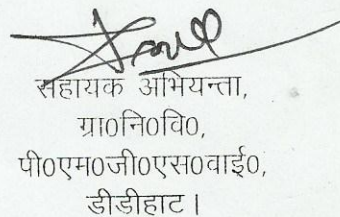 सहायक अभियन्ता,
ग्रा0नि0वि0,
पी0एम0जी0एस0वाई0,
डीडीहाट।